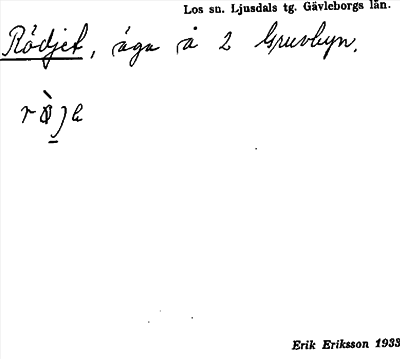 Los sn. Ljusdals tg. Gävleborgs län.
Rödjet, äga å 2 Gruvbyn.
Erik Eriksson 1933